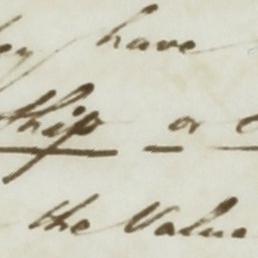 have
ship or
the Value